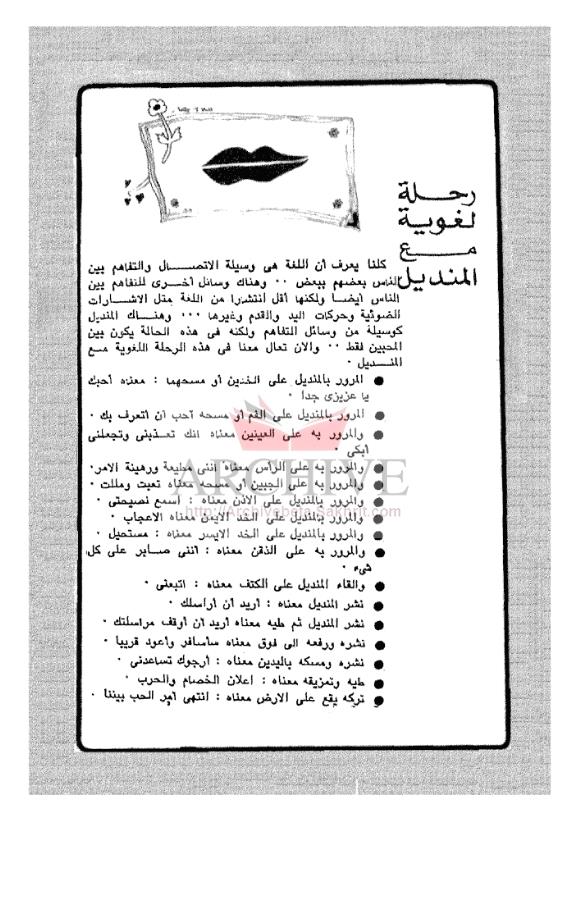 رحلة
لغوية
مع
المنديل
كلنا يعرف أن اللغة هى وسيلة الاتصال والتفاهم بين
الناس بعضهم ببعض ٠٠ وهناك وسائل أخرى للتفاهم بين
الناس أيضا ولكنها أقل انتشارا من اللغة مثل الاشارات
الضوئية وحركات اليد والقدم وغيرها ٠٠٠ وهناك المنديل
كوسيلة من وسائل التفاهم ولكنه فى هذه الحالة يكون بين
المحبين فقط ٠٠ والان تعال معنا فى هذه الرحلة اللغوية مع
المنديل ٠
● المرور بالمنديل على الخدين أو مسحهما : معناه أحبك
يا عزيزى جدا ٠
● المرور بالمنديل على الفم أو مسحه أحب أن أتعرف بك ٠
● والمرور به على العينين معناه انك تعذبنى وتجعلنى
أبكى ٠
● والمرور به على الرأس معناه اننى مطيعة ورهينة الامر٠
● والمرور به على الجبين أو مسحه معناه تعبت ومللت ٠
● والمرور بالمنديل على الاذن معناه : أسمع نصيحتى ٠
● والمرور بالمنديل على الخد الايمن معناه الاعجاب ٠
● والمرور بالمنديل على الخد الايسر معناه : مستحيل ٠
● والمرور به على الذقن معناه : أننى صابر على كل
شىء ٠
● والقاء المنديل على الكتف معناه : اتبعنى ٠
● نشر المنديل معناه : أريد أن أراسلك ٠
● نشر المنديل ثم طيه معناه أريد أن أوقف مراسلتك ٠
● نشره ورفعه الى فوق معناه سأسافر وأعود قريبا ٠
● نشره ومسكه باليدين معناه : أرجوك تساعدنى ٠
● طيه وتمزيقه معناه : اعلان الخصام والحرب ٠
● تركه يقع على الارض معناه : انتهى أمر الحب بيننا ٠
ARCHIVE
http://Archivebeta.Sakhrit.com